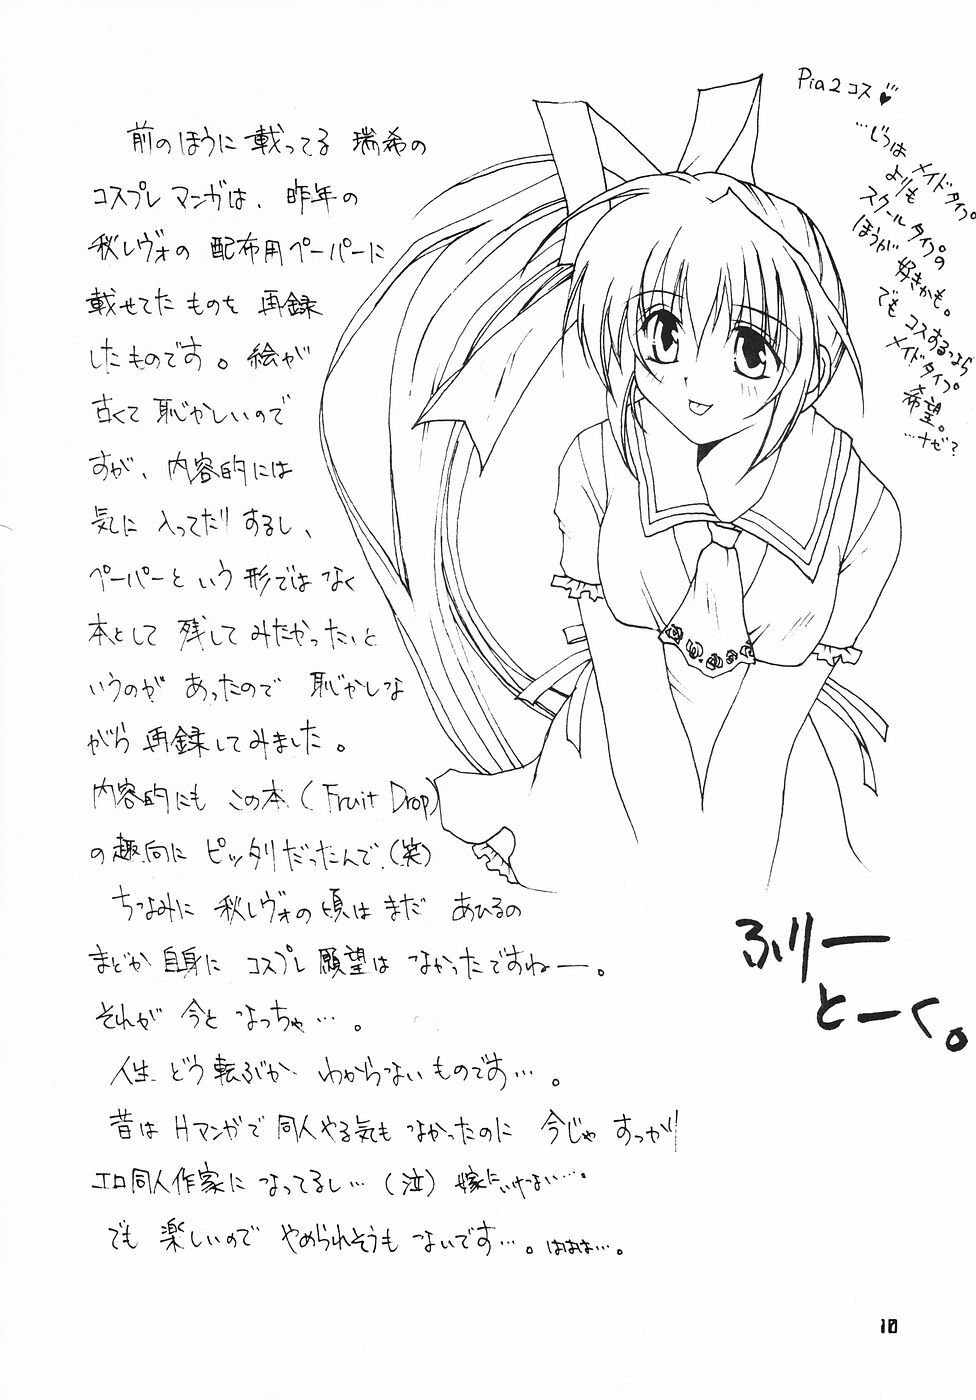 前のほうに載ってる 瑞希の
コスプレマンガは、昨年の
秋レヴォの 配布用ペーパーに
載せてた ものを 再録
したものです。絵が
古くて 恥かしいので
すが、内容的には
気に入ってたりするし、
ペーパーという形ではなく
本として 残してみたかったと
いうのが あったので 恥かしな
がら 再録してみました。
内容的にも この本(Fruit Drop)
の趣向に ピッタリだったんで(笑)
ちなみに 秋レヴォの頃は まだ あひるの
まどか自身に コスプレ願望は なかったですねー。
それが 今となっちゃ…。
人生 どう転ぶか わからないものです…。
昔は Hマンガで同人やる気も なかったのに 今じゃ すっかり
エロ同人作家に なってるし…(泣) 嫁にいけない…。
でも 楽しいので やめられそうも ないです…。ははは…。
Pia2コス♥
…じつは メイドタイプ
よりも
スクールタイプの
ほうが 好きかも。
でも コスするなら
メイドタイプ
希望。
…ナゼ?
ふりー
とーく。
10